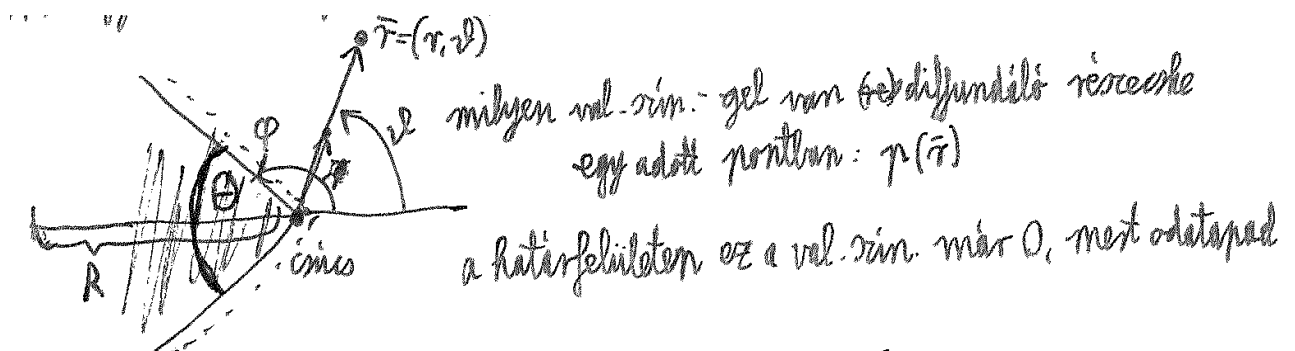 r̄=(r,ϑ)
milyen val.szín.-gel van diffundáló részecske
egy adott pontban: p(r̄)
φ
ϑ
Θ
R
csúcs
a határfelületen ez a val.szín. már 0, mert odatapad